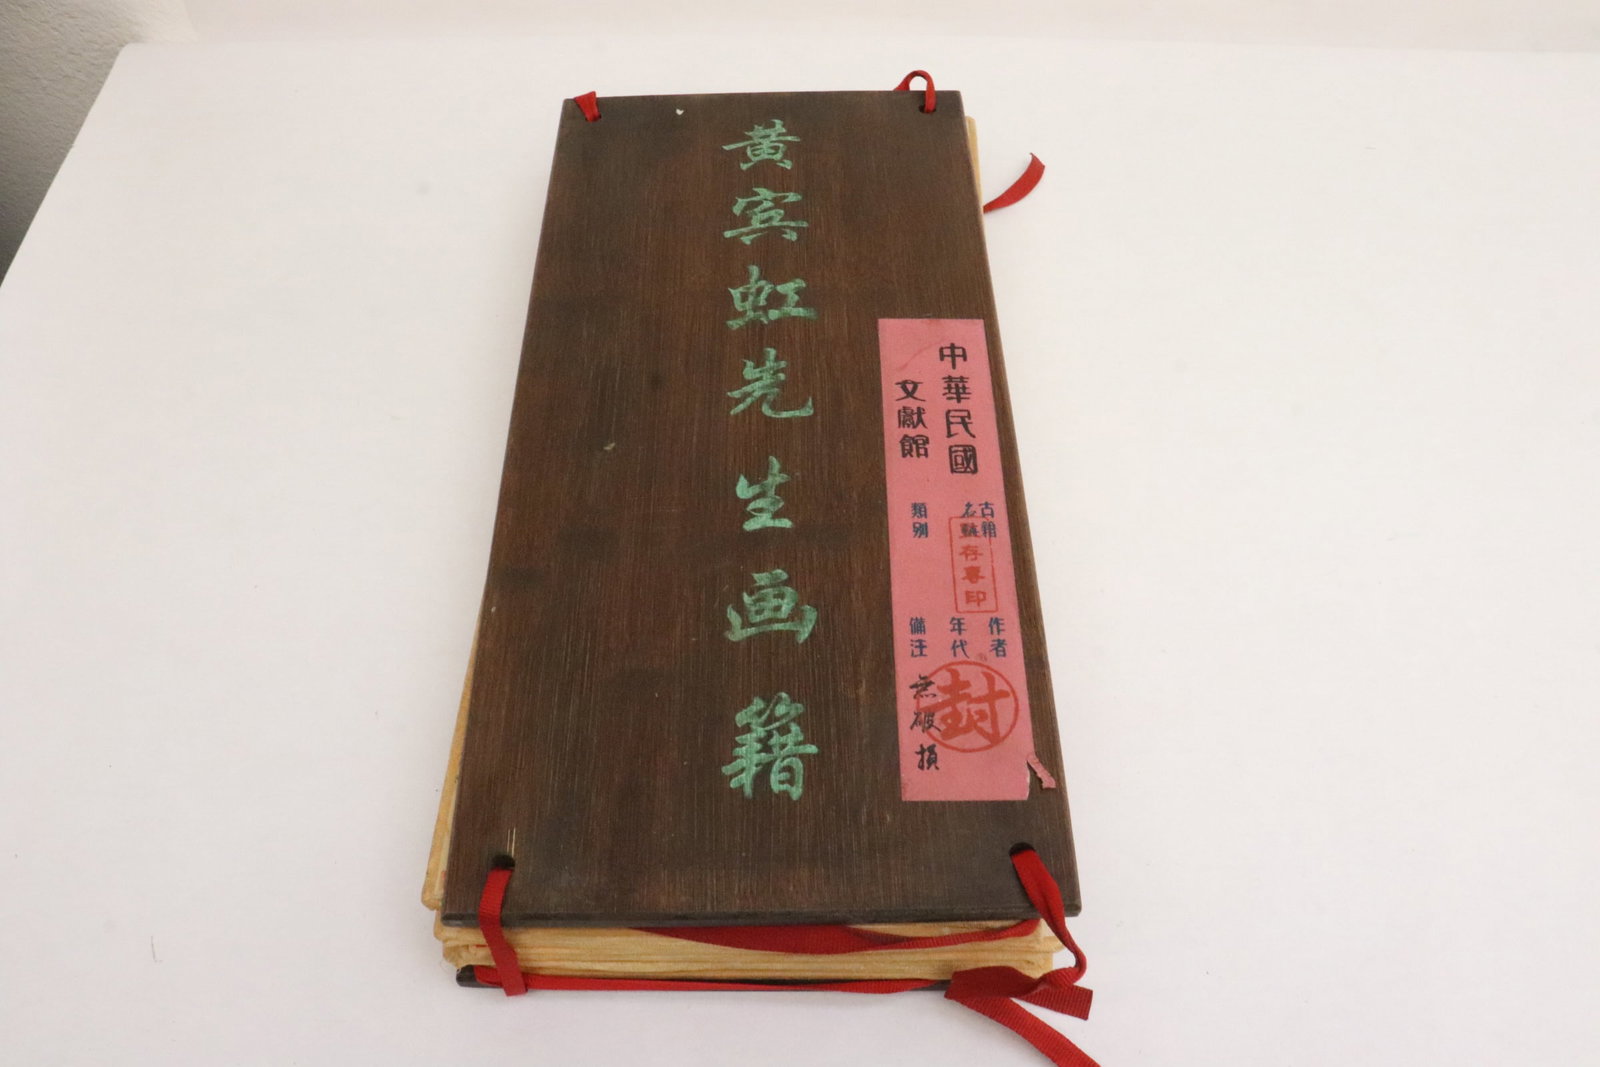 黄宾虹先生画籍
中華民國
文獻館
古籍
名
類别
存專印
作者
年代
備注
無破損
封